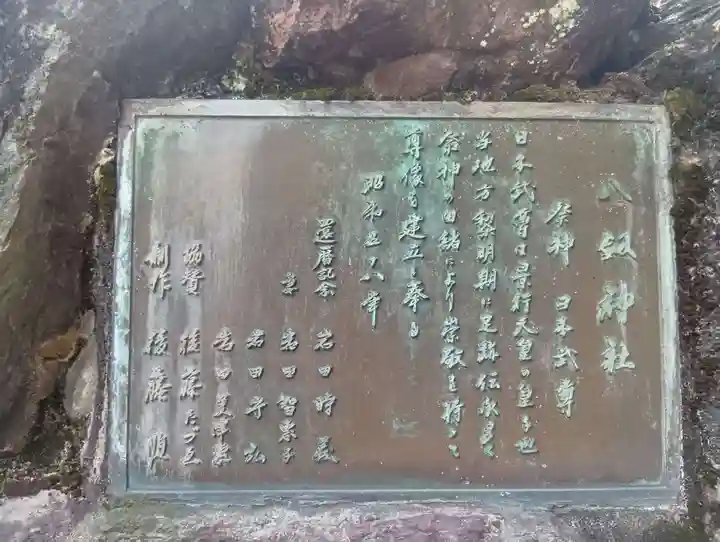 八剱神社
祭神 日本武尊
日本武尊は景行天皇の皇子也
当地方黎明期に足跡伝承あり
祭神の由緒により崇敬を持って
尊像を建立し奉る
昭和五十八年
還暦記念 岩田時義
妻 岩田智恵子
岩田守弘
岩田
協賛 後藤
制作 後藤